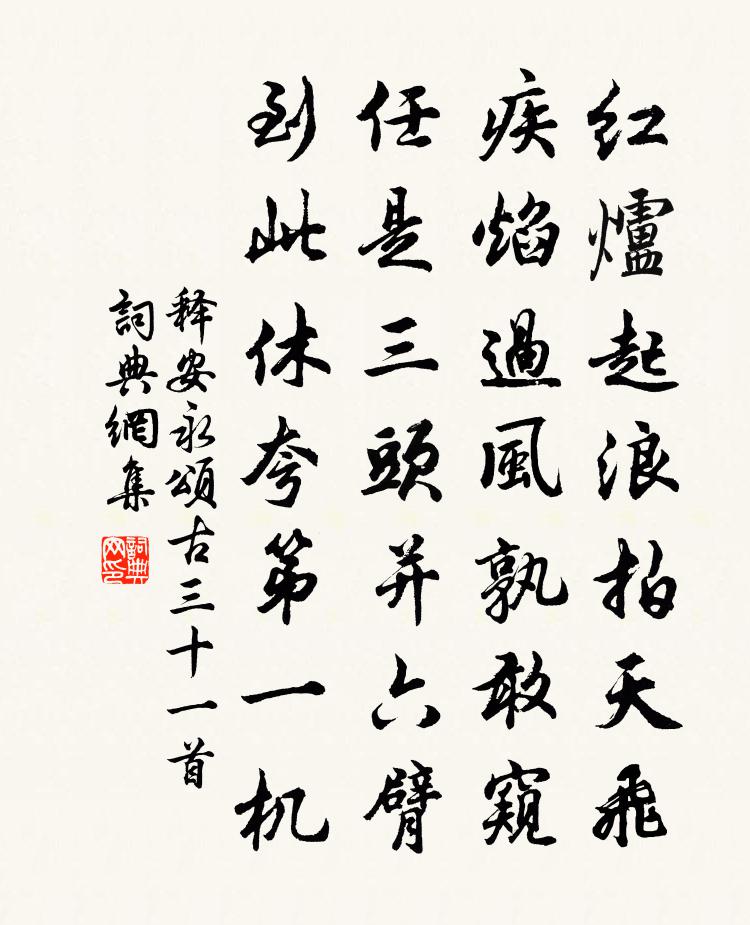 红爐起浪拍天飛
疾焰過風孰敢窺
任是三頭并六臂
到此休夸第一机
释安永頌古三十一首
詞典網集
詞典網印